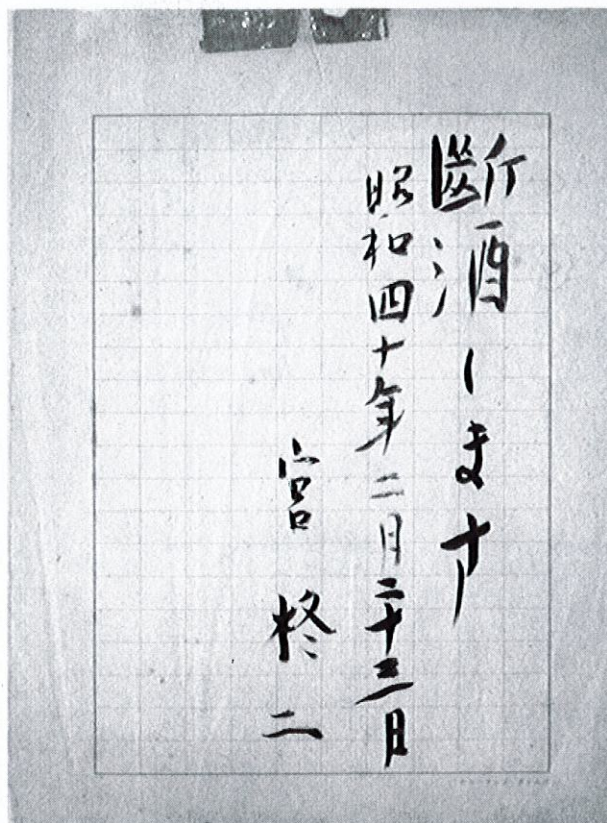 斷酒します
昭和四十年二月二十三日
宮柊二